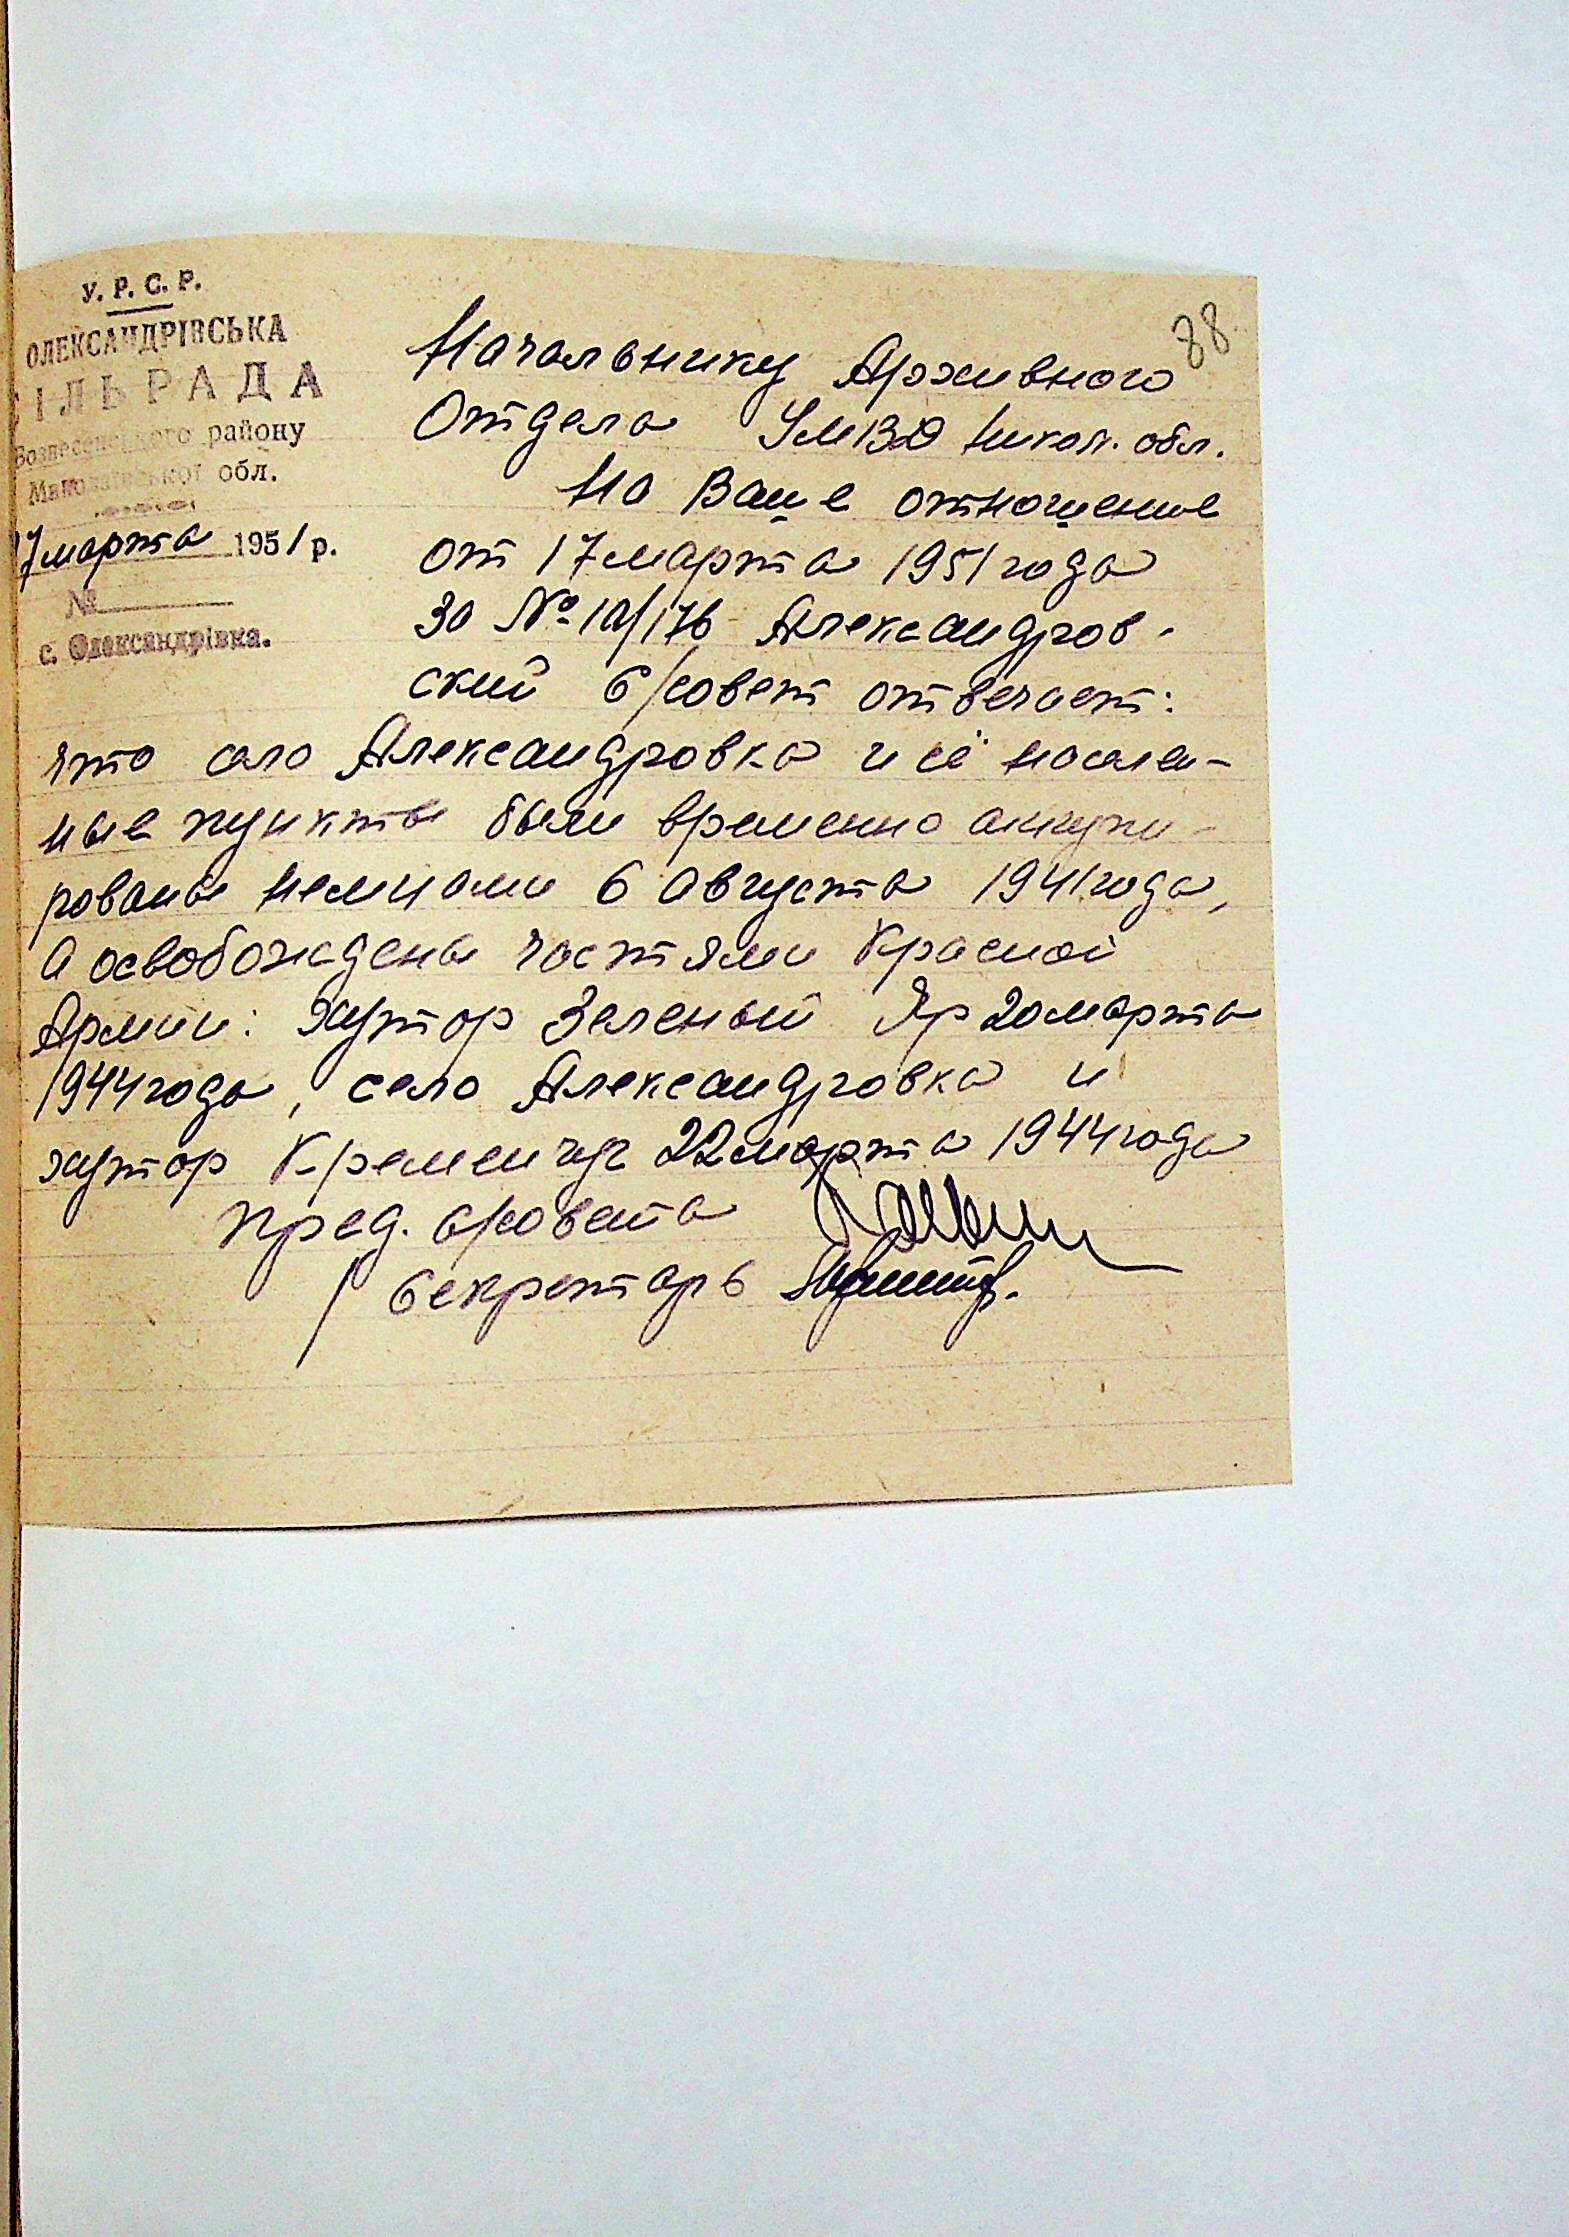 У. Р. С. Р.
ОЛЕКСАНДРІВСЬКА
СІЛЬРАДА
Вознесенського району
Миколаївської обл.
17 марта 1951 р.
№
с. Олександрівка.
88
Начальнику Архивного
Отдела УМВД Никол. обл.
На Ваше отношение
от 17 марта 1951 года
за № 10/176 Александров-
ский с/совет отвечает:
что село Александровка и её населе-
ные пункты были временно аккупи-
рованы немцами 6 августа 1941 года,
а освобождены частями Красной
Армии: хутор Зеленый Яр 20 марта
1944 года, село Александровка и
хутор Кременчуг 22 марта 1944 года
Пред. с/совета
Секретарь